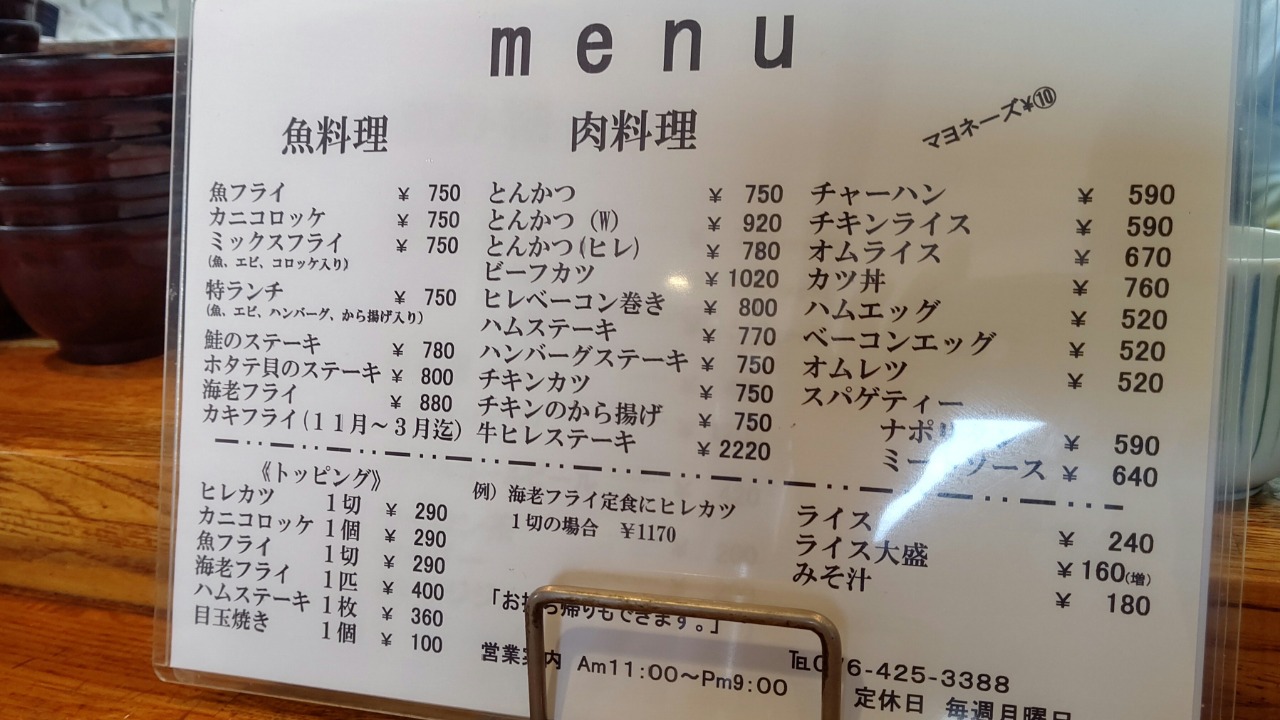 menu
マヨネーズ¥⑩
魚料理
魚フライ ¥ 750
カニコロッケ ¥ 750
ミックスフライ ¥ 750
(魚、エビ、コロッケ入り)
特ランチ ¥ 750
(魚、エビ、ハンバーグ、から揚げ入り)
鮭のステーキ ¥ 780
ホタテ貝のステーキ ¥ 800
海老フライ ¥ 880
カキフライ(11月～3月迄)
肉料理
とんかつ ¥ 750
とんかつ (W) ¥ 920
とんかつ(ヒレ) ¥ 780
ビーフカツ ¥ 1020
ヒレベーコン巻き ¥ 800
ハムステーキ ¥ 770
ハンバーグステーキ ¥ 750
チキンカツ ¥ 750
チキンのから揚げ ¥ 750
牛ヒレステーキ ¥ 2220
チャーハン ¥ 590
チキンライス ¥ 590
オムライス ¥ 670
カツ丼 ¥ 760
ハムエッグ ¥ 520
ベーコンエッグ ¥ 520
オムレツ ¥ 520
スパゲティー
ナポ ¥ 590
ミートソース ¥ 640
《トッピング》
ヒレカツ 1切 ¥ 290
カニコロッケ 1個 ¥ 290
魚フライ 1切 ¥ 290
海老フライ 1匹 ¥ 400
ハムステーキ 1枚 ¥ 360
目玉焼き 1個 ¥ 100
例) 海老フライ定食にヒレカツ
1切の場合 ¥1170
ライス ¥ 240
ライス大盛 ¥ 160(増)
みそ汁 ¥ 180
「お持ち帰りもできます。」
営業案内 Am11:00～Pm9:00
℡076-425-3388
定休日 毎週月曜日